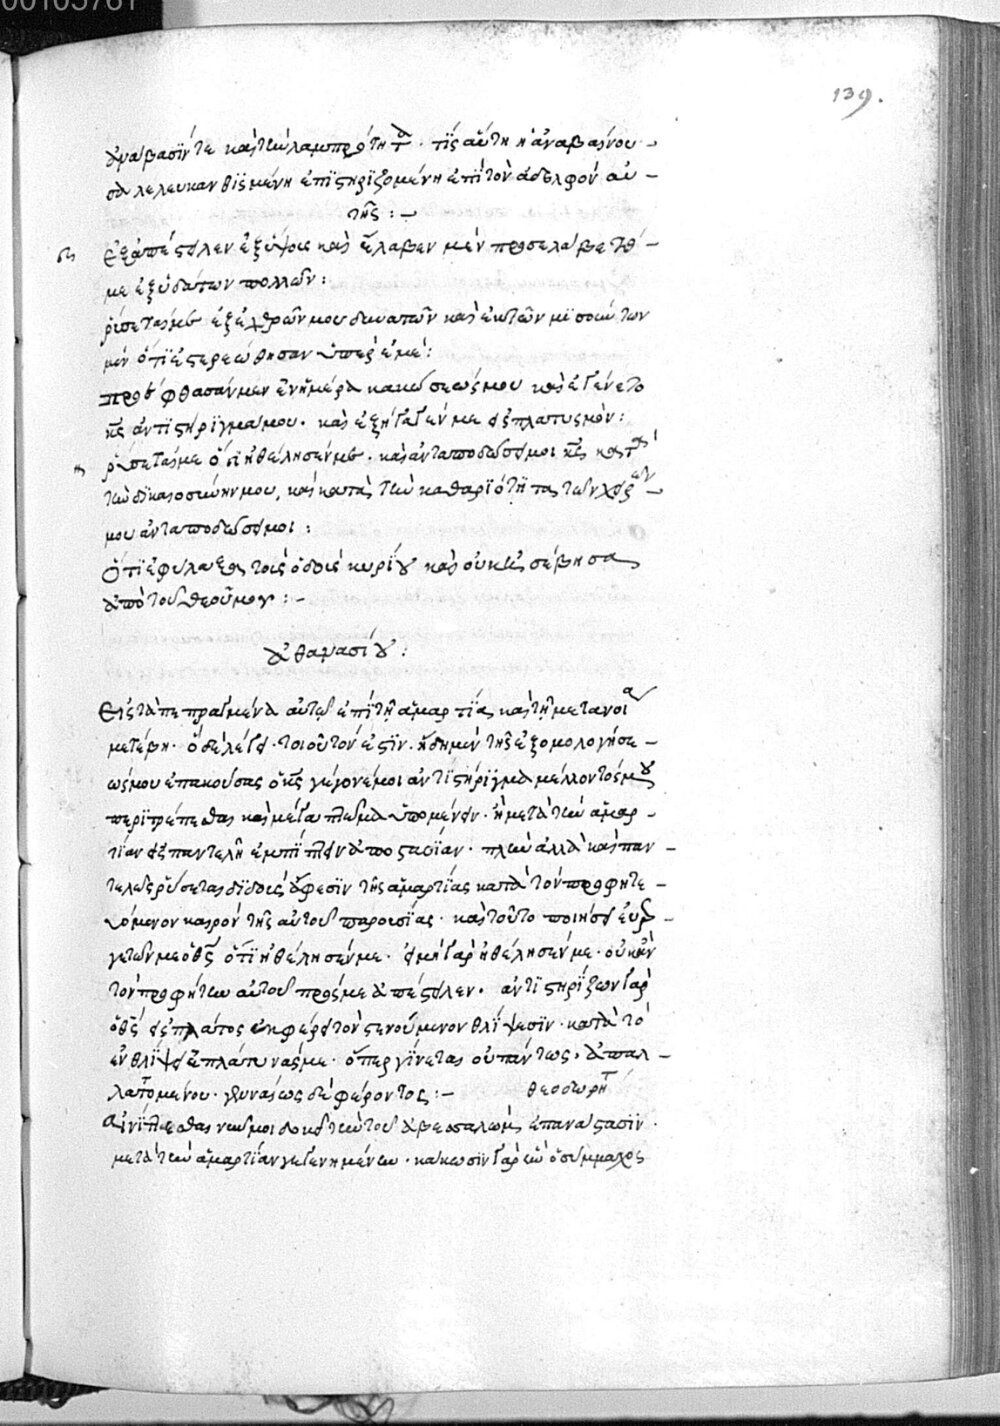 00105761
139.
ἀνάβασίν τε καὶ τὴν λαμπρότητα. τίς αὕτη ἡ ἀναβαίνου-
σα λελευκανθισμένη ἐπιστηριζομένη ἐπὶ τὸν ἀδελφὸν αὐ-
τῆς:-
ἐξαπέστειλεν ἐξ ὕψους καὶ ἔλαβέν με προσελάβετό
με ἐξ ὑδάτων πολλῶν:
ῥύσεταί με ἐξ ἐχθρῶν μου δυνατῶν καὶ ἐκ τῶν μισούντων
με ὅτι ἐστερεώθησαν ὑπὲρ ἐμέ:
προέφθασάν με ἐν ἡμέρα κακώσεώς μου καὶ ἐγένετο
κς ἀντιστήριγμά μου. καὶ ἐξήγαγέν με εἰς πλατυσμόν:
ῥύσεταί με ὅτι ἠθέλησέν με. καὶ ἀνταποδώσει μοι κς κατὰ
τὴν δικαιοσύνην μου, καὶ κατὰ τὴν καθαριότητα τῶν χειρῶν
μου ἀνταποδώσει μοι:
ὅτι ἐφύλαξα τὰς ὁδοὺς κυρίου καὶ οὐκ ἠσέβησα
ἀπὸ τοῦ θεοῦ μου:-
ἀθανασίου:
Εἰς τὰ πεπραγμένα αὐτῷ ἐπὶ τῇ ἁμαρτία καὶ τῇ μετανοία
μετέβη. ὃ δὲ λέγει. τοιοῦτόν ἐστιν. ἤδη μὲν τῆς ἐξομολογήσε-
ώς μου ἐπακούσας ὁ κς γέγονέ μοι ἀντιστήριγμα μέλλοντός μου
περιτρέπεσθαι καὶ μέγα πτῶμα ὑπομένειν. ἢ μετὰ τὴν ἁμαρ-
τίαν εἰς παντελῆ ἐμπίπτειν ἀποστασίαν. πλὴν ἀλλὰ καὶ παν-
τελῶς ῥύσεται διδοὺς ἄφεσιν τῆς ἁμαρτίας κατὰ τὸν προφητε-
υόμενον καιρὸν τῆς αὐτοῦ παρουσίας. καὶ τοῦτο ποιήσει εὐερ-
γετῶν με ὁ θς ὅτι ἠθέλησέν με. εἰ μὴ γὰρ ἠθέλησέν με. οὐκ ἂν
τὸν προφήτην αὐτοῦ πρός με ἀπέστειλεν. ἀντιστηρίζων γὰρ
ὁ θς εἰς πλάτος ἐκφέρει τὸν στενούμενον θλίψεσιν. κατὰ τὸ
ἐν θλίψει ἐπλάτυνάς με. ὅπερ γίνεται οὐ πάντως. ἀπαλ-
λαττομένου. γενναίως δὲ φέροντος:- θεοδωρήτ
Αἰνίττεσθαι νῦν μοι δοκεῖ τὴν τοῦ ἀβεσαλὼμ ἐπανάστασιν.
μετὰ τὴν ἁμαρτίαν γεγενημένην. κάκωσιν γὰρ ὁ σύμμαχος